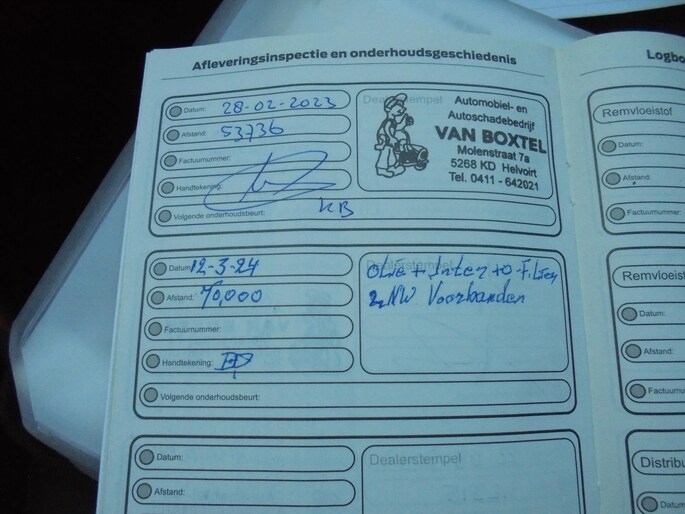 Afleveringsinspectie en onderhoudsgeschiedenis
Datum: 28-02-2023
Afstand: 53736
Factuurnummer:
Handtekening:
KB
Volgende onderhoudsbeurt:
Dealerstempel
Automobiel- en
Autoschadebedrijf
VAN BOXTEL
Molenstraat 7a
5268 KD Helvoirt
Tel. 0411 - 642021
Datum: 12-3-24
Afstand: 70,000
Factuurnummer:
Handtekening:
Volgende onderhoudsbeurt:
Dealerstempel
olie + Inter
2 NW Voorbanden
Datum:
Afstand:
Dealerstempel
Logbo
Remvloeistof
Datum:
Afstand:
Factuurnummer:
Remvloeist
Datum:
Afstand:
Factuurnu
Distribu
Datum